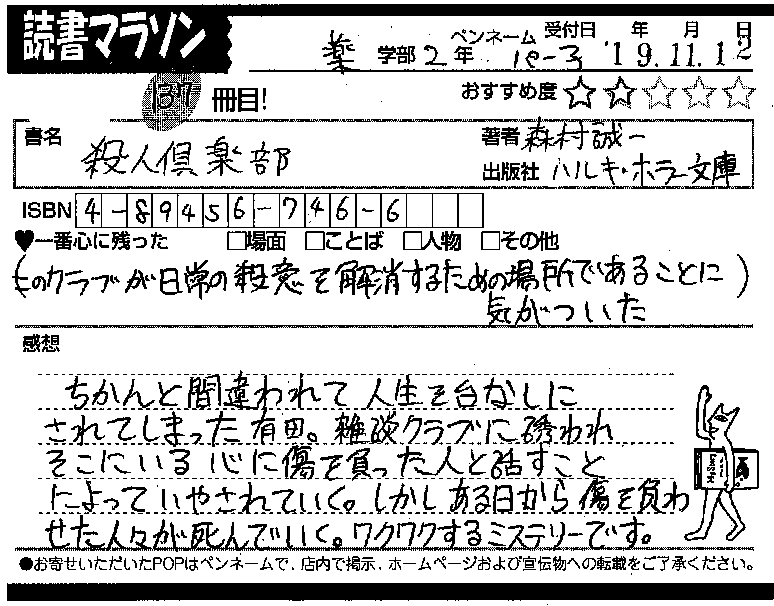 読書マラソン
薬 学部 2 年 ペンネーム ぱーる 受付日 '19年11月12日
137 冊目! おすすめ度 ☆☆☆☆☆
書名 殺人倶楽部 著者 森村誠一
出版社 ハルキ・ホラー文庫
ISBN 4-89456-746-6
♥一番心に残った □場面 □ことば □人物 □その他
(このクラブが日常の殺意を解消するための場所であることに
気がついた)
感想
ちかんと間違われて人生を台なしに
されてしまった有田。雑談クラブに誘われ
そこにいる心に傷を負った人と話すこと
によっていやされていく。しかしある日から傷を負わ
せた人々が死んでいく。ワクワクするミステリーです。
●お寄せいただいたPOPはペンネームで、店内で掲示、ホームページおよび宣伝物への転載をご了承ください。